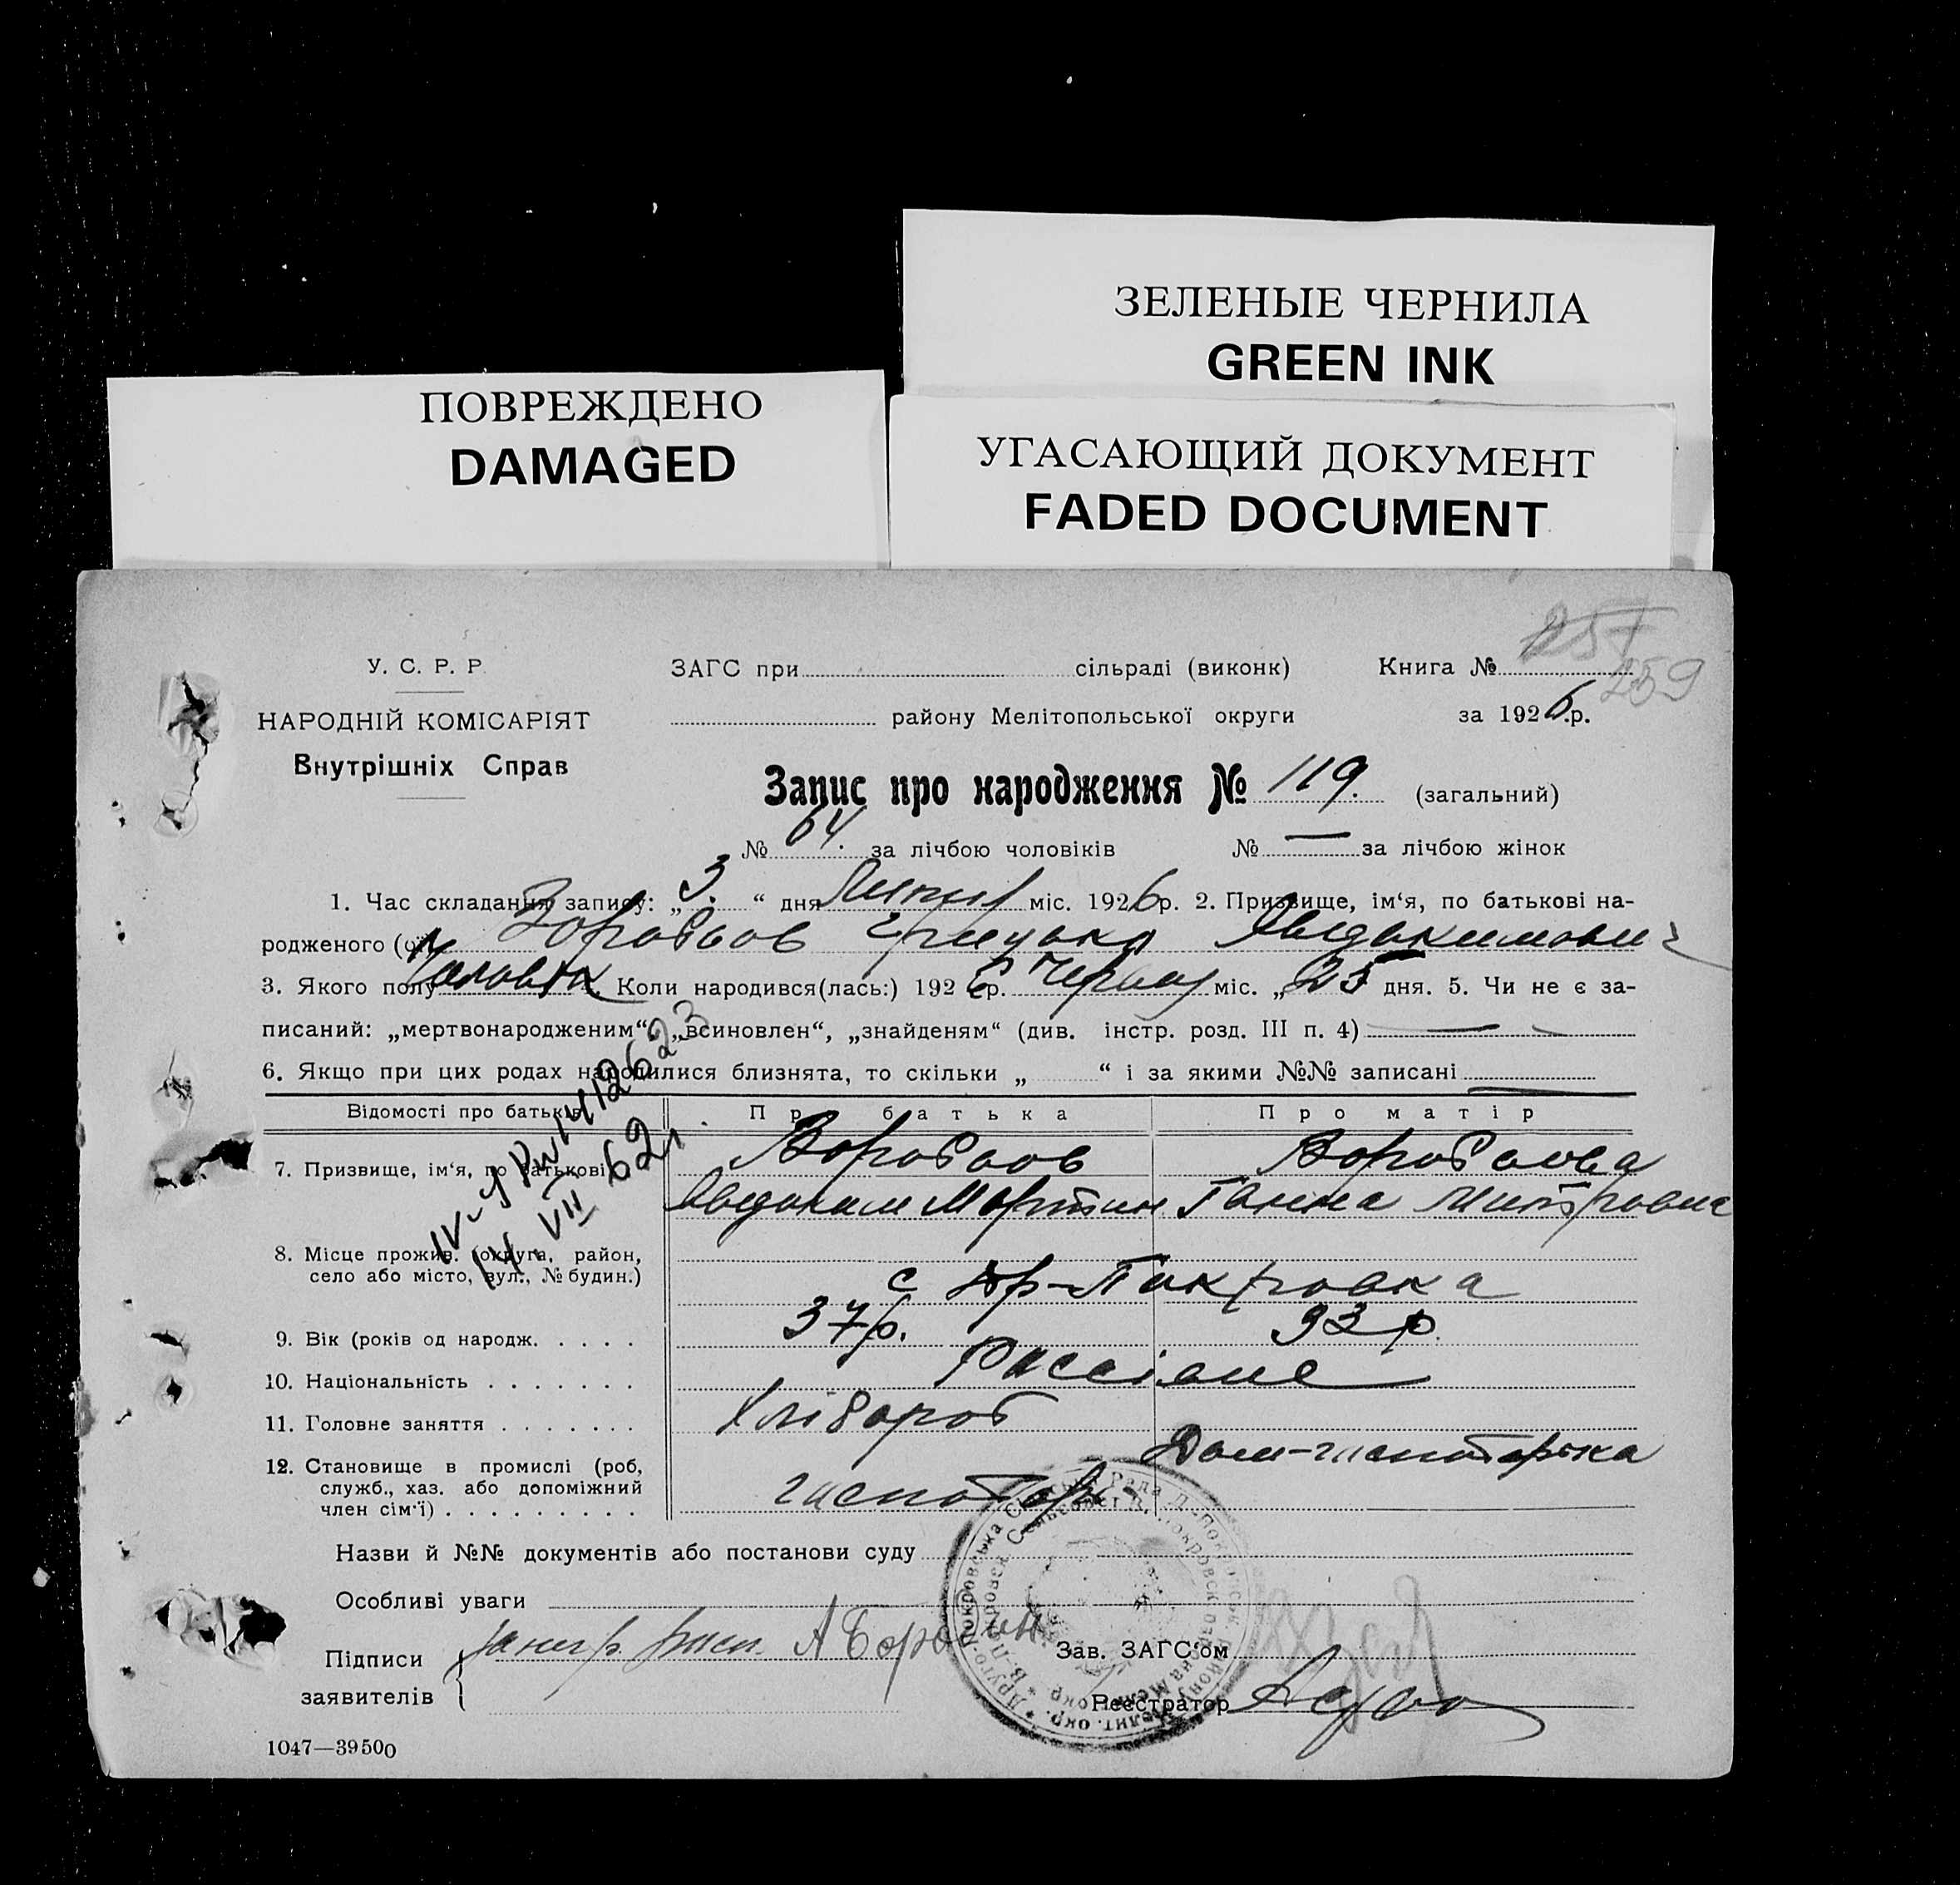 ЗЕЛЕНЫЕ ЧЕРНИЛА
GREEN INK
ПОВРЕЖДЕНО
DAMAGED
УГАСАЮЩИЙ ДОКУМЕНТ
FADED DOCUMENT
259
У. С. Р. Р. ЗАГС при сільраді (виконк) Книга №
НАРОДНІЙ КОМІСАРІЯТ району Мелітопольської округи за 1926 р.
Внутрішніх Справ
Запис про народження № 119. (загальний)
№ 64. за лічбою чоловіків № — за лічбою жінок
1. Час складання запису: „3.“ дня Липня міс. 1926 р. 2. Призвище, ім‘я, по батькові на-
родженого (ої) Воробьов Грицько Авдакимович
3. Якого полу Чоловік 4. Коли народився(лась:) 1926 р. Червня міс. „25 дня. 5. Чи не є за-
писаний: „мертвонародженим“, „всиновлен“, „знайденям“ (див. інстр. розд. III п. 4) —
6. Якщо при цих родах народилися близнята, то скільки „ “ і за якими №№ записані
Відомості про батьків Про батька Про матір
7. Призвище, ім‘я, по батькові Воробьов Воробьова
Авдаким Мартин Ганна Митровна
8. Місце прожив. (округа, район,
село або місто, вул., № будин.) с Др-Покровка
9. Вік (років од народж. . . . . 37 р. 32 р.
10. Національність . . . . . . . Россіяне
11. Головне заняття . . . . . . . Хлібороб
Дом-господарька
12. Становище в промислі (роб,
служб., хаз. або допоміжний
член сім‘ї) . . . . . . . . . господар
Назви й №№ документів або постанови суду
Особливі уваги
Підписи
заявителів
Зав. ЗАГС‘ом
Реєстратор
1047—39500